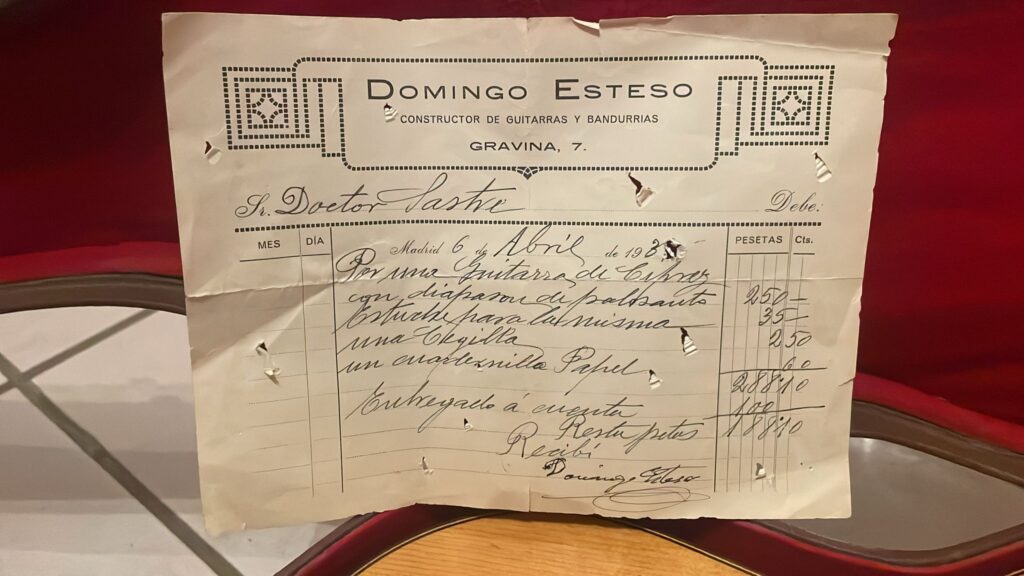 DOMINGO ESTESO
CONSTRUCTOR DE GUITARRAS Y BANDURRIAS
GRAVINA, 7.
Sr. Doctor Sastre Debe:
MES DÍA PESETAS Cts.
Madrid 6 de Abril de 193
Por una Guitarra de Ciprez
con diapason de palosanto 250 —
Estuche para la misma 35 —
una Cegilla 2 50
un cuadernillo Papel 60
288 10
Entregado á cuenta 100
Resta ptas 188 10
Recibí
Domingo Esteso